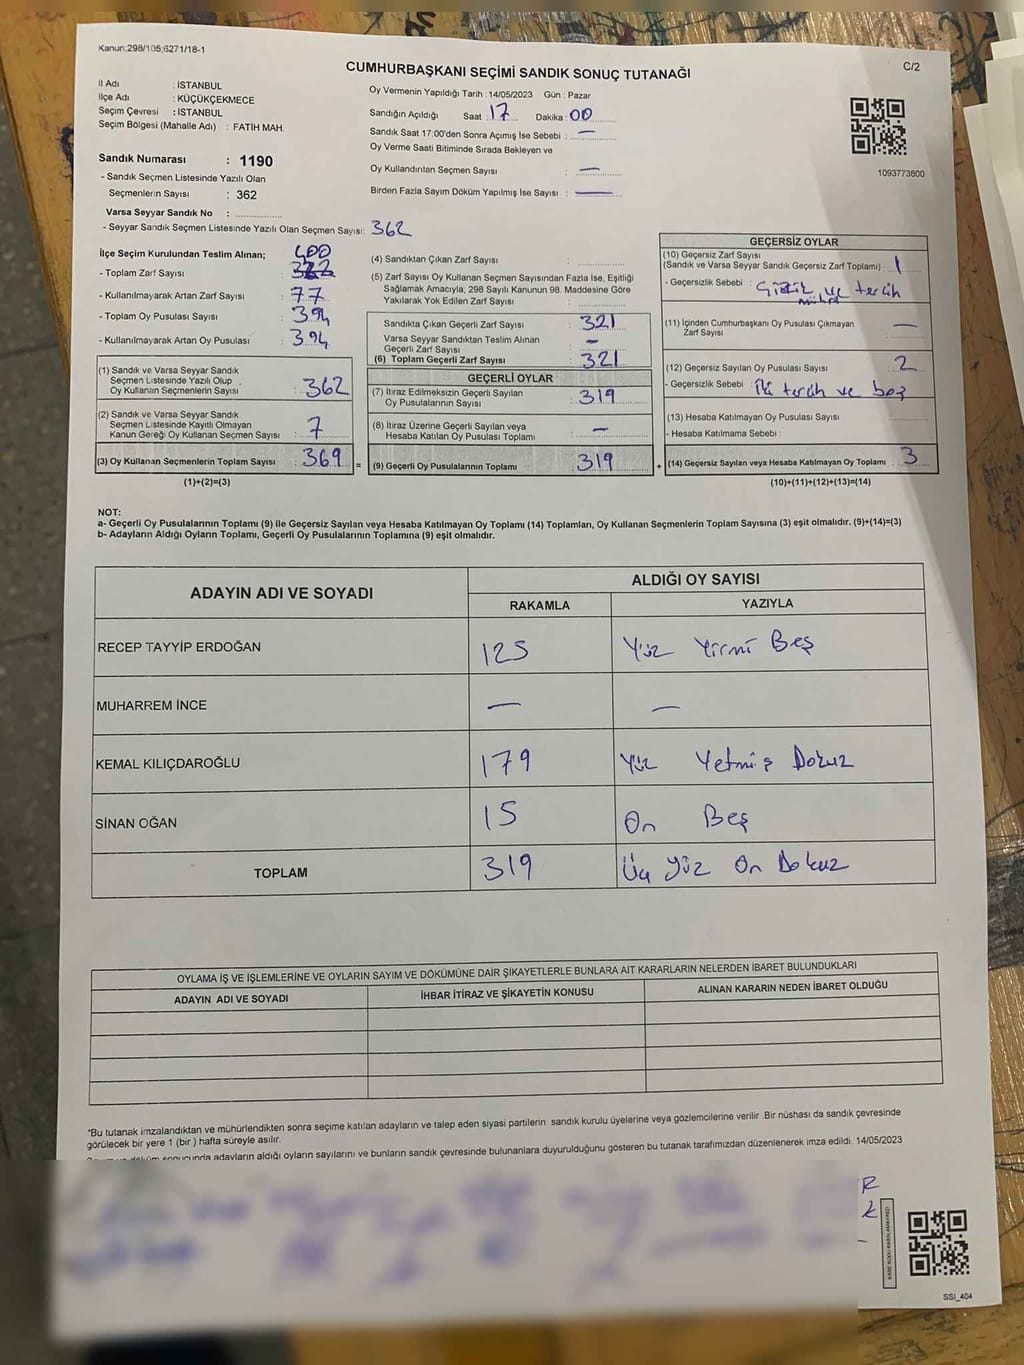 Kanun:298/105;6271/18-1
C/2
CUMHURBAŞKANI SEÇİMİ SANDIK SONUÇ TUTANAĞI
İl Adı : İSTANBUL
İlçe Adı : KÜÇÜKÇEKMECE
Seçim Çevresi : İSTANBUL
Seçim Bölgesi (Mahalle Adı) : FATİH MAH.
Sandık Numarası : 1190
- Sandık Seçmen Listesinde Yazılı Olan
Seçmenlerin Sayısı : 362
Varsa Seyyar Sandık No :
- Seyyar Sandık Seçmen Listesinde Yazılı Olan Seçmen Sayısı: 362
Oy Vermenin Yapıldığı Tarih : 14/05/2023 Gün : Pazar
Sandığın Açıldığı Saat : 17 Dakika : 00
Sandık Saat 17:00'den Sonra Açımış İse Sebebi : —
Oy Verme Saati Bitiminde Sırada Bekleyen ve
Oy Kullandırılan Seçmen Sayısı : —
Birden Fazla Sayım Döküm Yapılmış İse Sayısı : —
1093773800
İlçe Seçim Kurulundan Teslim Alınan; 400
- Toplam Zarf Sayısı :
- Kullanılmayarak Artan Zarf Sayısı : 77
- Toplam Oy Pusulası Sayısı : 394
- Kullanılmayarak Artan Oy Pusulası : 394
(1) Sandık ve Varsa Seyyar Sandık
Seçmen Listesinde Yazılı Olup
Oy Kullanan Seçmenlerin Sayısı : 362
(2) Sandık ve Varsa Seyyar Sandık
Seçmen Listesinde Kayıtlı Olmayan
Kanun Gereği Oy Kullanan Seçmen Sayısı : 7
(3) Oy Kullanan Seçmenlerin Toplam Sayısı : 369
(1)+(2)=(3)
(4) Sandıktan Çıkan Zarf Sayısı :
(5) Zarf Sayısı Oy Kullanan Seçmen Sayısından Fazla İse, Eşitliği
Sağlamak Amacıyla, 298 Sayılı Kanunun 98. Maddesine Göre
Yakılarak Yok Edilen Zarf Sayısı :
Sandıkta Çıkan Geçerli Zarf Sayısı : 321
Varsa Seyyar Sandıktan Teslim Alınan
Geçerli Zarf Sayısı : —
(6) Toplam Geçerli Zarf Sayısı : 321
GEÇERLİ OYLAR
(7) İtiraz Edilmeksizin Geçerli Sayılan
Oy Pusulalarının Sayısı : 319
(8) İtiraz Üzerine Geçerli Sayılan veya
Hesaba Katılan Oy Pusulası Toplamı : —
= (9) Geçerli Oy Pusulalarının Toplamı : 319
GEÇERSİZ OYLAR
(10) Geçersiz Zarf Sayısı
(Sandık ve Varsa Seyyar Sandık Geçersiz Zarf Toplamı) : 1
- Geçersizlik Sebebi : ve tercih
(11) İçinden Cumhurbaşkanı Oy Pusulası Çıkmayan
Zarf Sayısı : —
(12) Geçersiz Sayılan Oy Pusulası Sayısı : 2
- Geçersizlik Sebebi : İki tercih ve boş
(13) Hesaba Katılmayan Oy Pusulası Sayısı :
- Hesaba Katılmama Sebebi :
+ (14) Geçersiz Sayılan veya Hesaba Katılmayan Oy Toplamı : 3
(10)+(11)+(12)+(13)=(14)
NOT:
a- Geçerli Oy Pusulalarının Toplamı (9) ile Geçersiz Sayılan veya Hesaba Katılmayan Oy Toplamı (14) Toplamları, Oy Kullanan Seçmenlerin Toplam Sayısına (3) eşit olmalıdır. (9)+(14)=(3)
b- Adayların Aldığı Oyların Toplamı, Geçerli Oy Pusulalarının Toplamına (9) eşit olmalıdır.
ADAYIN ADI VE SOYADI ALDIĞI OY SAYISI
RAKAMLA YAZIYLA
RECEP TAYYİP ERDOĞAN 125 Yüz Yirmi Beş
MUHARREM İNCE — —
KEMAL KILIÇDAROĞLU 179 Yüz Yetmiş Dokuz
SİNAN OĞAN 15 On Beş
TOPLAM 319 Üç Yüz On Dokuz
OYLAMA İŞ VE İŞLEMLERİNE VE OYLARIN SAYIM VE DÖKÜMÜNE DAİR ŞİKAYETLERLE BUNLARA AİT KARARLARIN NELERDEN İBARET BULUNDUKLARI
ADAYIN ADI VE SOYADI İHBAR İTİRAZ VE ŞİKAYETİN KONUSU ALINAN KARARIN NEDEN İBARET OLDUĞU
*Bu tutanak imzalandıktan ve mühürlendikten sonra seçime katılan adayların ve talep eden siyasi partilerin sandık kurulu üyelerine veya gözlemcilerine verilir. Bir nüshası da sandık çevresinde
görülecek bir yere 1 (bir ) hafta süreyle asılır.
sonucunda adayların aldığı oyların sayılarını ve bunların sandık çevresinde bulunanlara duyurulduğunu gösteren bu tutanak tarafımızdan düzenlenerek imza edildi. 14/05/2023
SSI_404